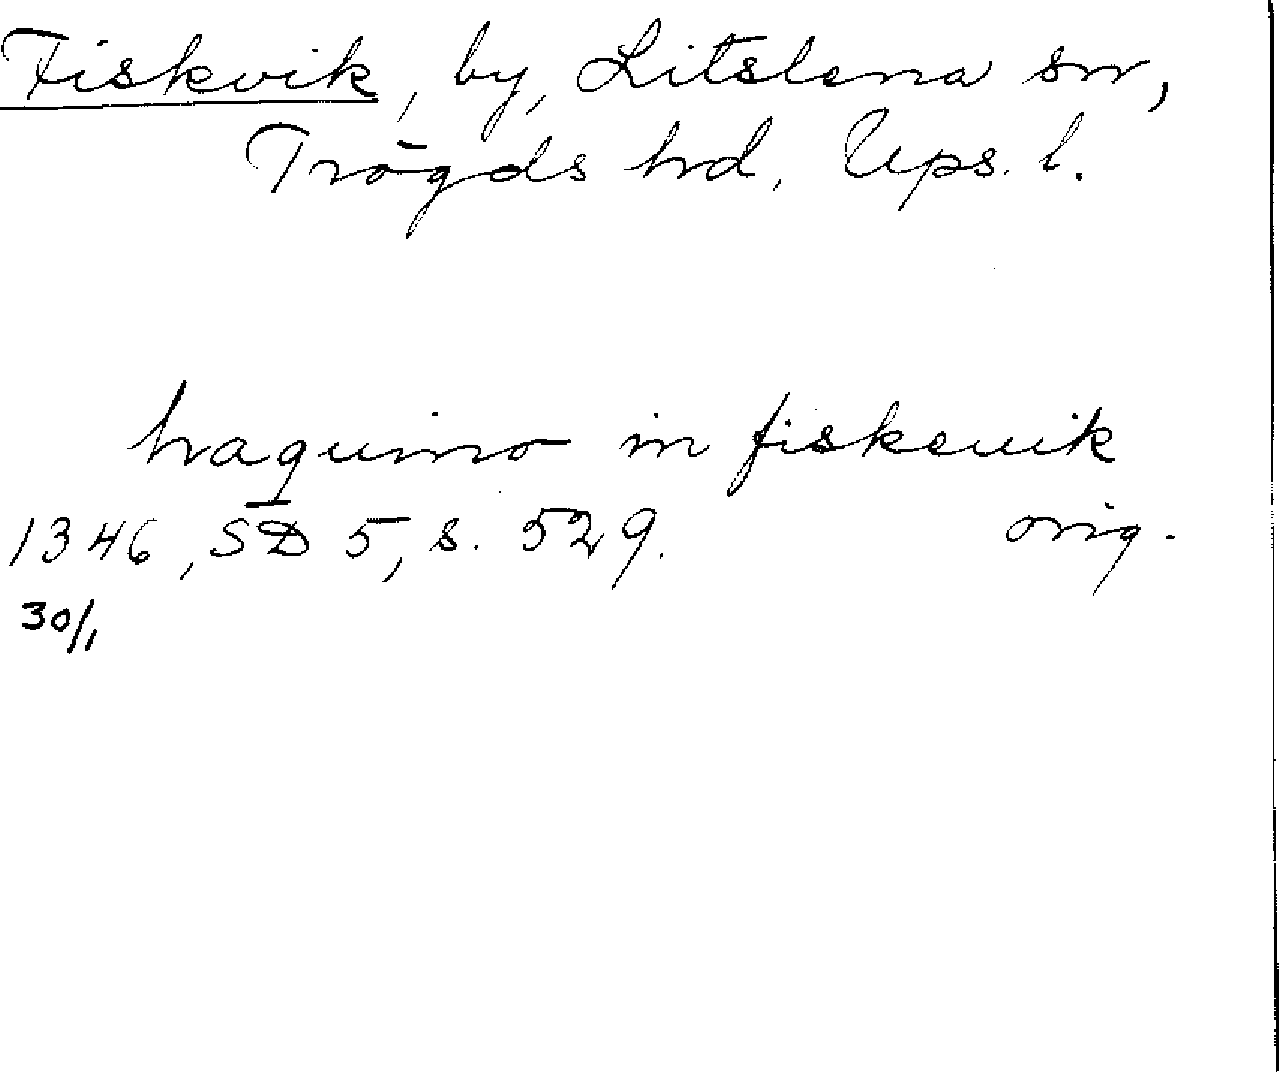 Fiskvik, by, Litslena sn,
Trögds hd, Ups. l.
haquino in fiskeuik
1346, SD 5, s. 529. orig.
30/1